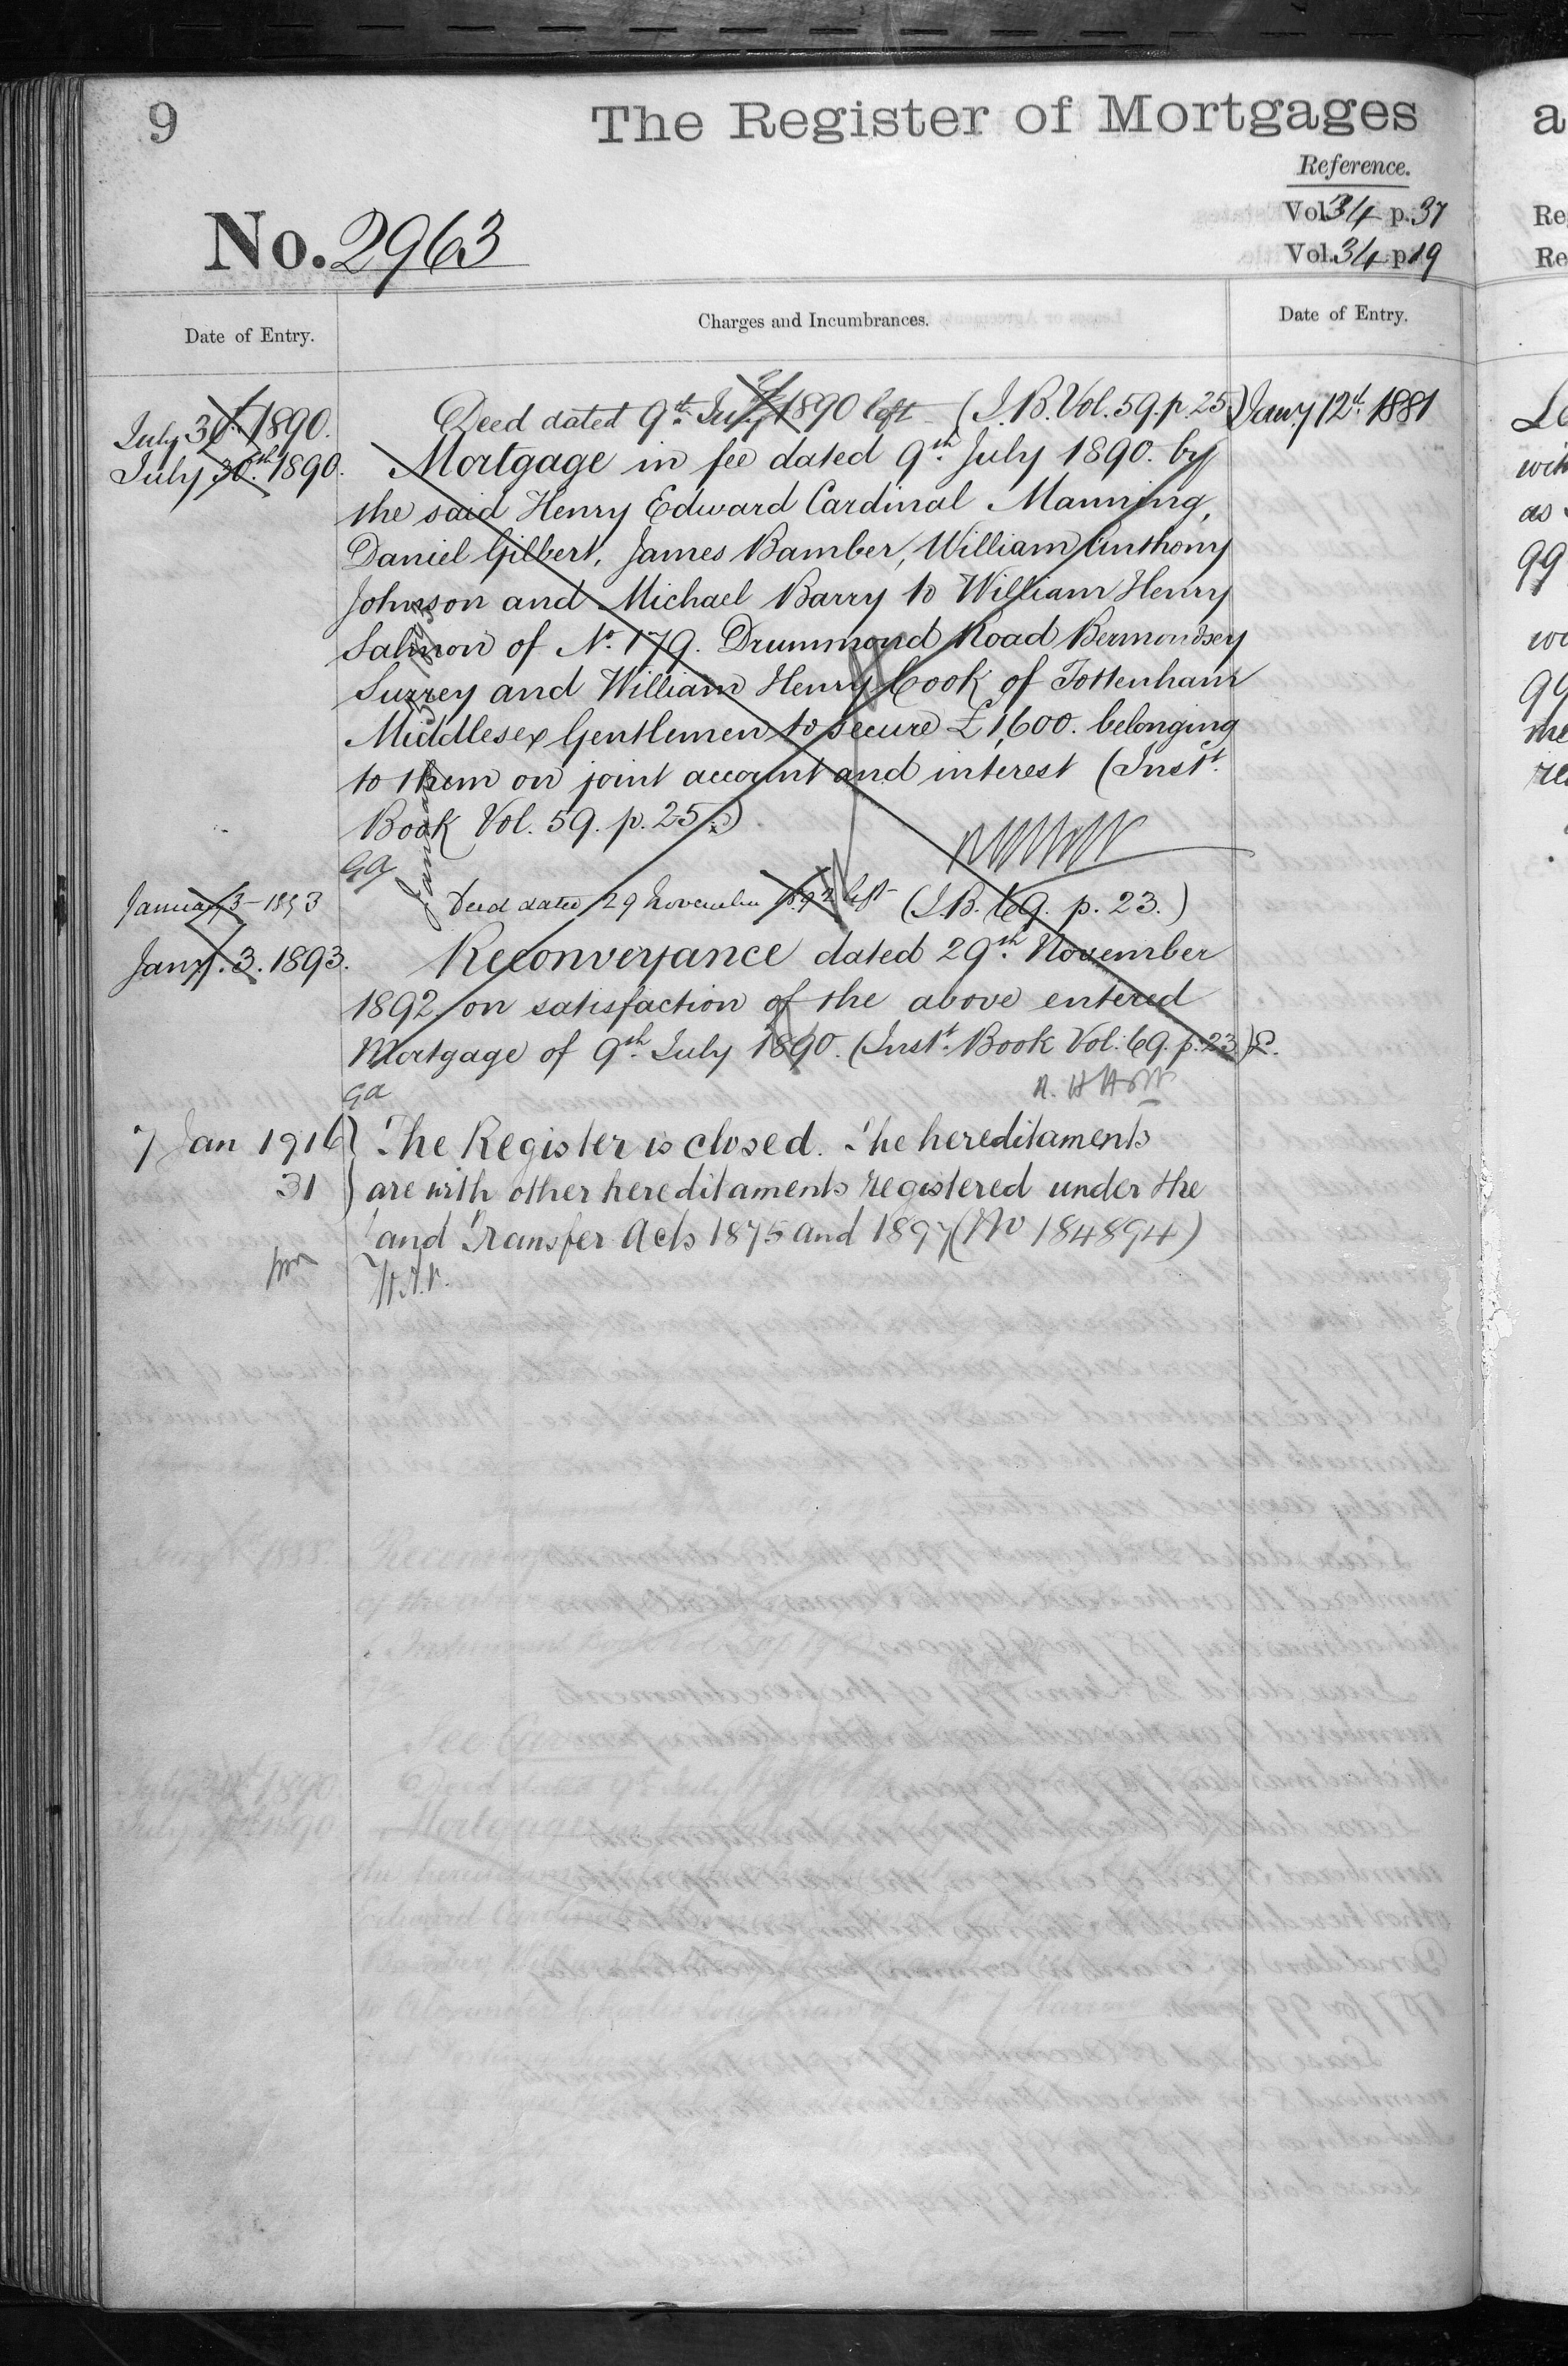 9
The Register of Mortgages
Reference.
Vol. 34 p. 37
Vol. 34 p. 19
No. 2963
Date of Entry.
Charges and Incumbrances.
Date of Entry.
July 30th 1890.
Deed dated 9th July 1890 left (I.B. Vol. 59. p. 25)
Jany 12th 1881
July 30th 1890.
Mortgage in fee dated 9th July 1890. by
the said Henry Edward Cardinal Manning,
Daniel Gilbert, James Bamber, William Anthony
Johnson and Michael Barry to William Henry
Salmon of No. 179. Drummond Road Bermondsey
Surrey and William Henry Cook of Tottenham
Middlesex Gentlemen to secure £1,600. belonging
to them on joint account and interest (Inst.
Book Vol. 59. p. 25.)
GA
January 3 - 1893
Deed dated 29 November 1892 left (I.B. 69. p. 23.)
Jany. 3. 1893.
Reconveyance dated 29th November
1892 on satisfaction of the above entered
Mortgage of 9th July 1890. (Inst. Book Vol: 69. p. 23.)
GA
7 Jan 1916
The Register is closed. The hereditaments
31
are with other hereditaments registered under the
Land Transfer Acts 1875 and 1897 (No 184894)
a
Re
Re
as
99
99